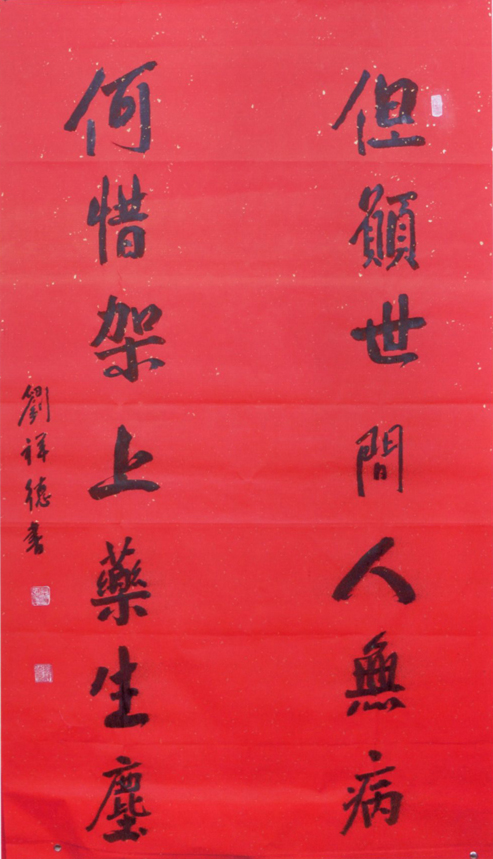 但願世間人無病
何惜架上藥生塵
劉祥德書